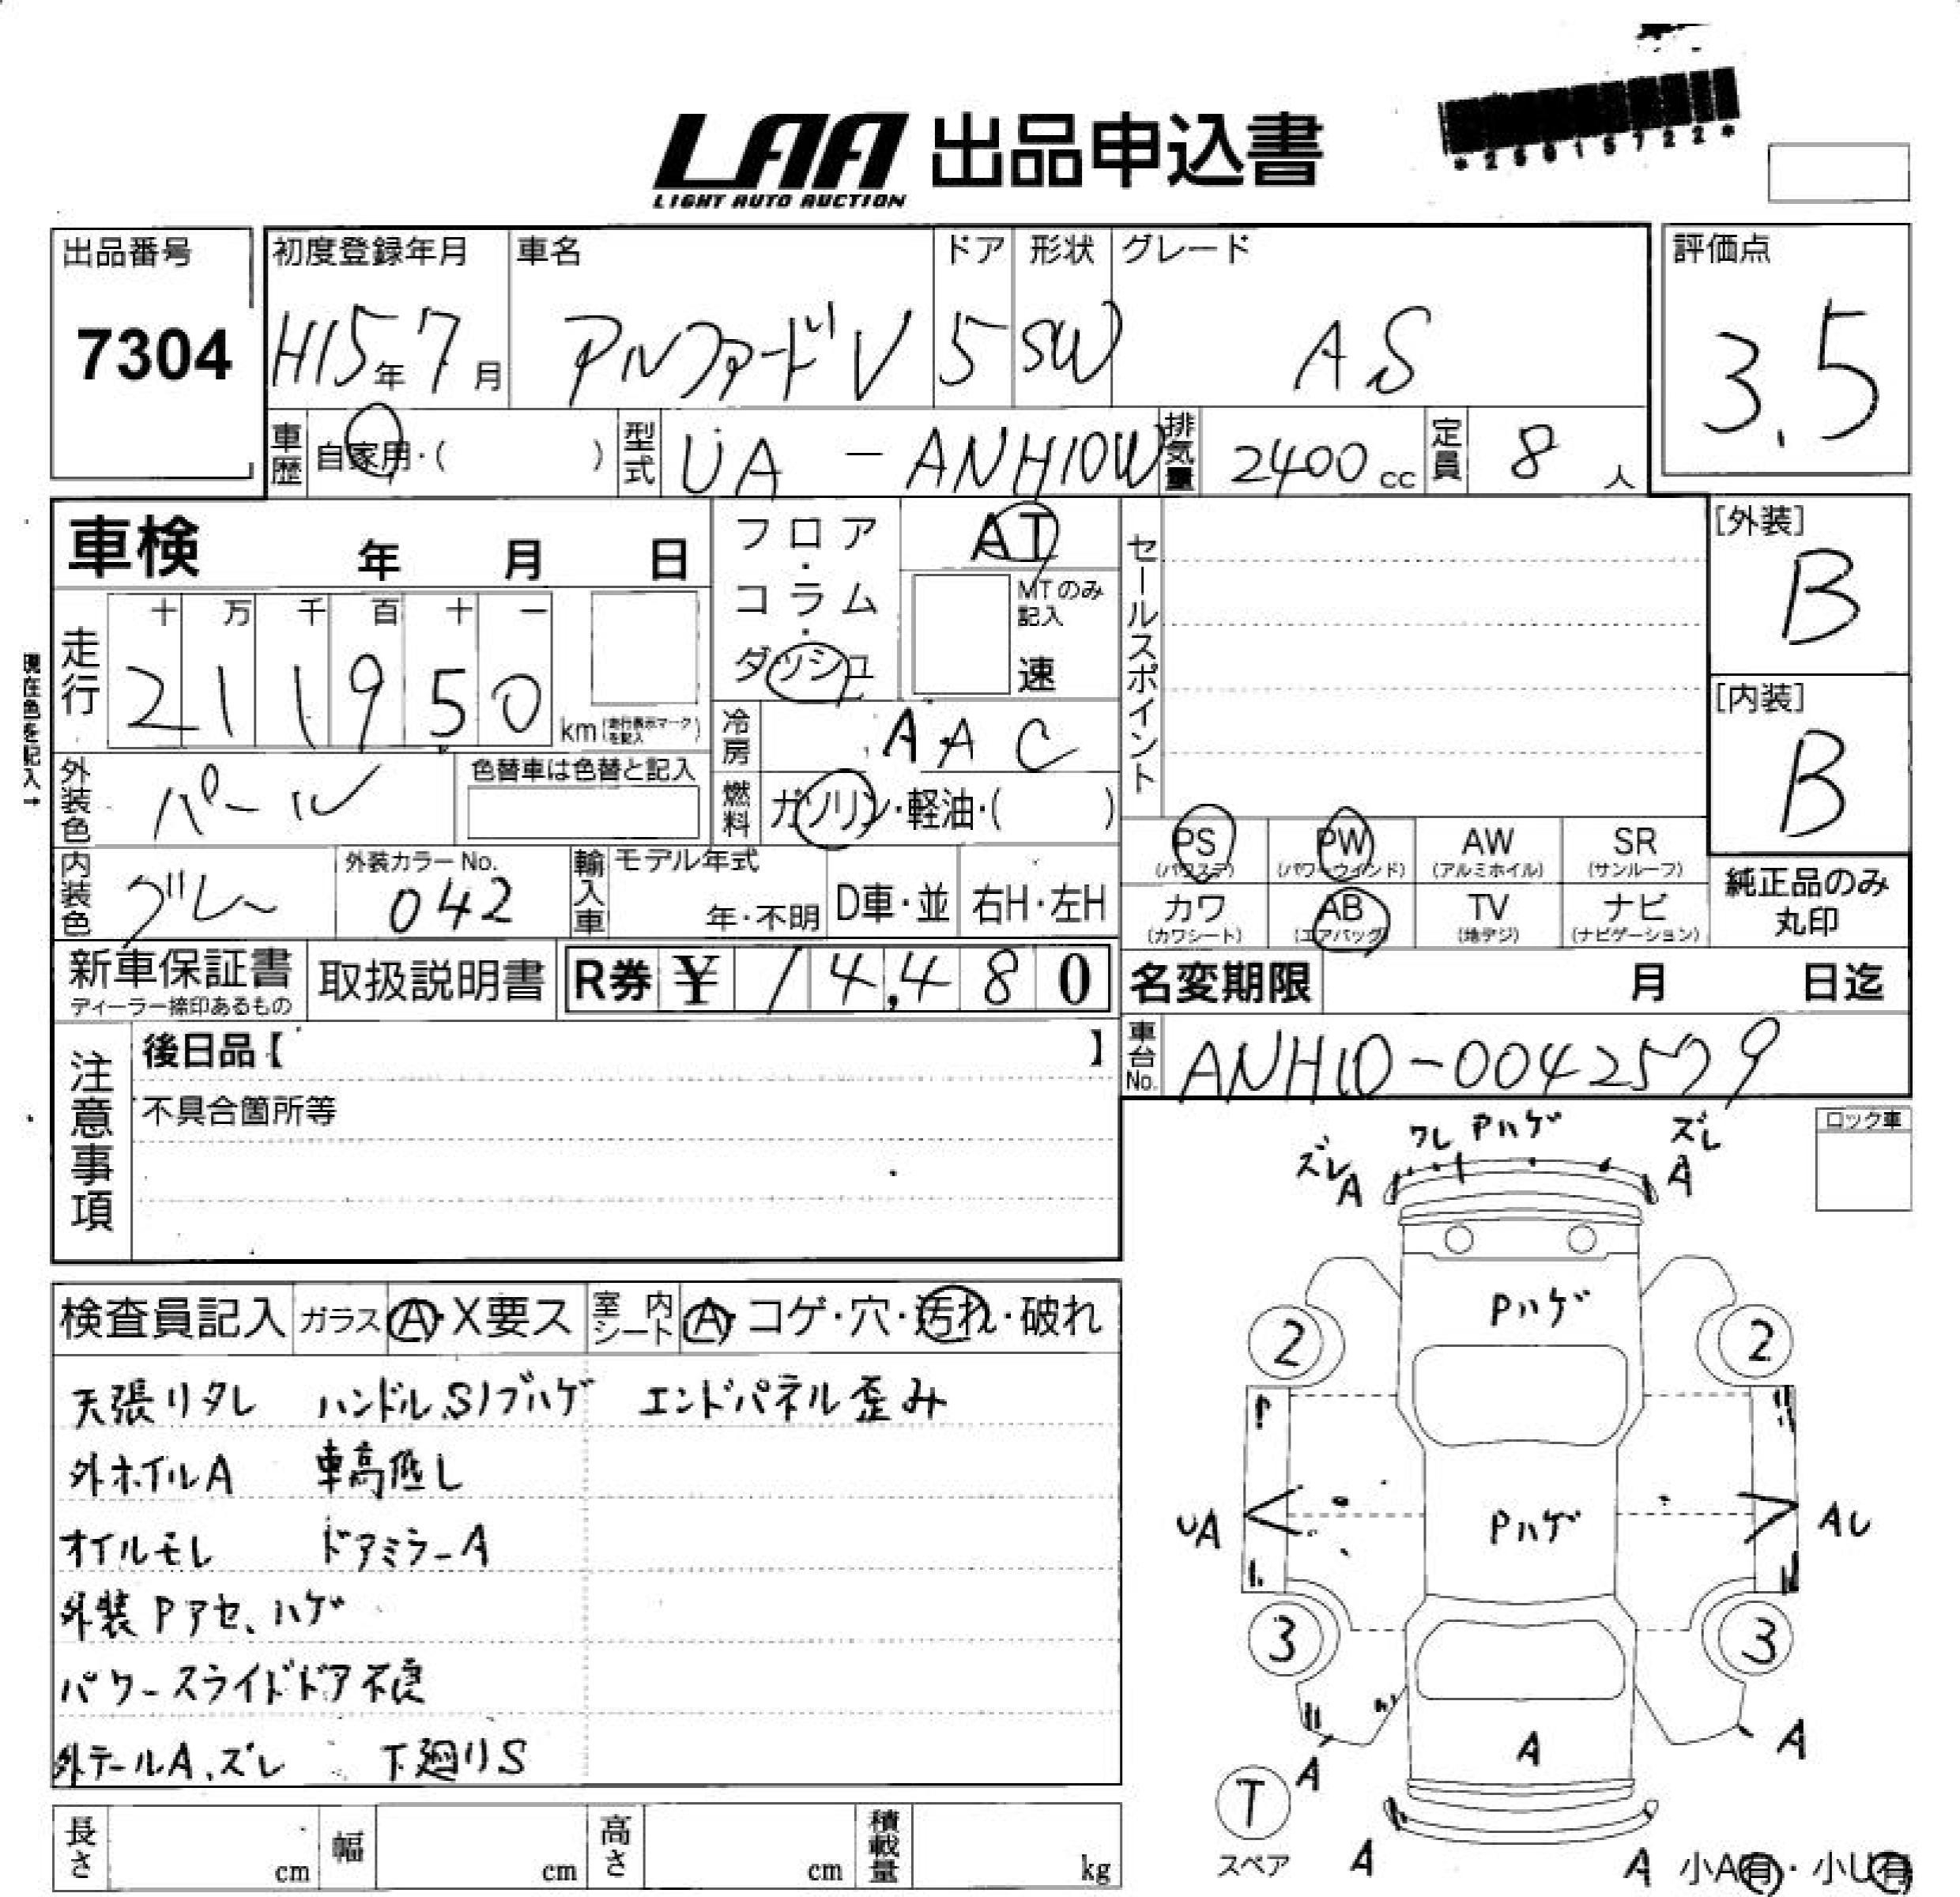 LAA 出品申込書
LIGHT AUTO AUCTION
出品番号 初度登録年月 車名 ドア 形状 グレード 評価点
7304 H15年7月 アルファードV 5 SW AS 3.5
車歴 自家用・( ) 型式 UA-ANH10W 排気量 2400cc 定員 8人
車検 年 月 日 フロア・コラム・ダッシュ AT セールスポイント [外装]
B
MTのみ記入
速
現在色を記入→
走行 十 万 千 百 十 一
2 1 1 9 5 0 km (走行表示マークを記入)
[内装]
B
冷房 AAC
外装色 パール 色替車は色替と記入 燃料 ガソリン・軽油・( )
PS (パワステ) PW (パワーウインド) AW (アルミホイル) SR (サンルーフ)
内装色 グレー 外装カラーNo. 042 輸入車 モデル年式 年・不明 D車・並 右H・左H
カワ (カワシート) AB (エアバッグ) TV (地デジ) ナビ (ナビゲーション)
純正品のみ
丸印
新車保証書 取扱説明書 R券 ¥ 14,480 名変期限 月 日迄
ディーラー捺印あるもの
注意事項 後日品【 】 車台No. ANH10-0042579
不具合箇所等
ロック車
ズレ ワレ Pハゲ ズレ
A A
検査員記入 ガラス A・X要ス 室内シート A・コゲ・穴・汚れ・破れ
Pハゲ
2 2
天張りタレ ハンドル、S/ブハゲ エンドパネル歪み
外ホイルA 車高低し
UA Pハゲ AU
オイルモレ ドアミラーA
外装Pアセ、ハゲ
3 3
パワースライドドア不良
外テールA、ズレ 下廻りS
A A A
T
スペア A A 小A有・小U有
長さ cm 幅 cm 高さ cm 積載量 kg